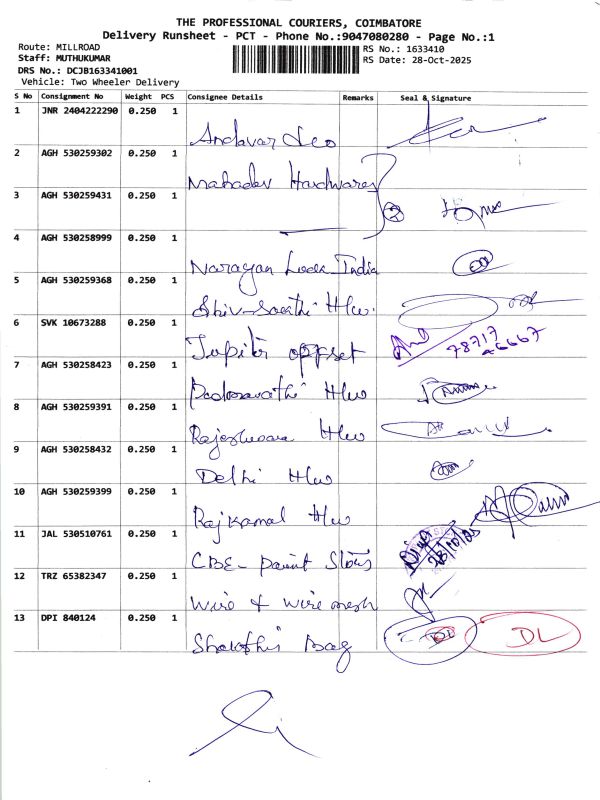 THE PROFESSIONAL COURIERS, COIMBATORE
Delivery Runsheet - PCT - Phone No.:9047080280 - Page No.:1
Route: MILLROAD
RS No.: 1633410
Staff: MUTHUKUMAR
RS Date: 28-Oct-2025
DRS No.: DCJB163341001
Vehicle: Two Wheeler Delivery
S No Consignment No Weight PCS Consignee Details Remarks Seal & Signature
1 JNR 2404222290 0.250 1
Andavar Leo
2 AGH 530259302 0.250 1
Mahadev Hardwares
3 AGH 530259431 0.250 1
2
4 AGH 530258999 0.250 1
Narayan Lock India
5 AGH 530259368 0.250 1
Shiv-Sakthi H/w.
6 SVK 10673288 0.250 1
Jupiter offset 78717 46667
7 AGH 530258423 0.250 1
Padmavathi H/w
8 AGH 530259391 0.250 1
Rajeshwara H/w
9 AGH 530258432 0.250 1
Delhi H/w
10 AGH 530259399 0.250 1
Rajkamal H/w
11 JAL 530510761 0.250 1
CBE- paint Stores 28/10/25
12 TRZ 65382347 0.250 1
Wire & wire mesh
13 DPI 840124 0.250 1
Shakthi Bag DL DL